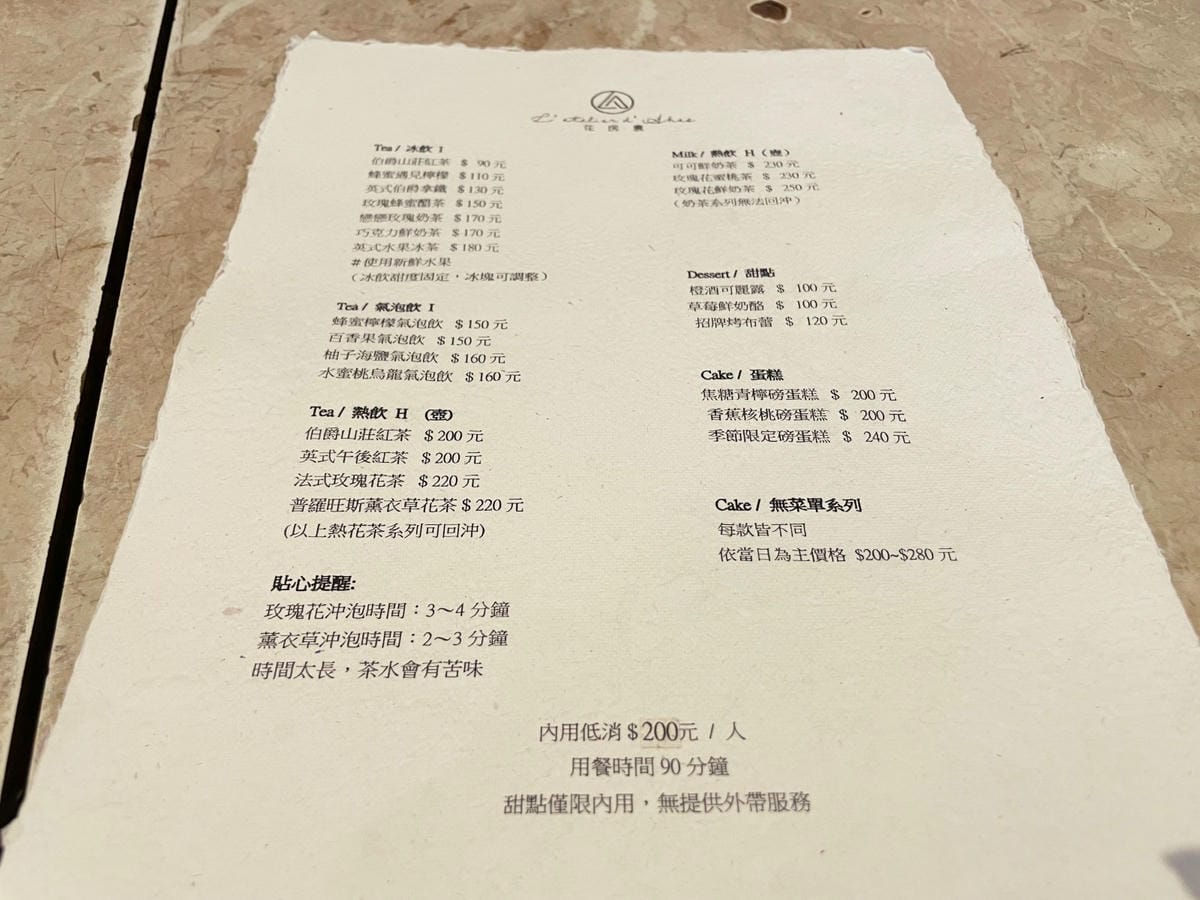 L'atelier d'Ahee
花房裏
Tea / 冰飲 I
伯爵山莊紅茶 $ 90 元
蜂蜜遇見檸檬 $ 110 元
英式伯爵拿鐵 $ 130 元
玫瑰蜂蜜醋茶 $ 150 元
戀戀玫瑰奶茶 $ 170 元
巧克力鮮奶茶 $ 170 元
英式水果冰茶 $ 180 元
#使用新鮮水果
(冰飲甜度固定，冰塊可調整)
Tea / 氣泡飲 I
蜂蜜檸檬氣泡飲 $ 150 元
百香果氣泡飲 $ 150 元
柚子海鹽氣泡飲 $ 160 元
水蜜桃烏龍氣泡飲 $ 160 元
Tea / 熱飲 H (壺)
伯爵山莊紅茶 $ 200 元
英式午後紅茶 $ 200 元
法式玫瑰花茶 $ 220 元
普羅旺斯薰衣草花茶 $ 220 元
(以上熱花茶系列可回沖)
貼心提醒:
玫瑰花沖泡時間：3～4 分鐘
薰衣草沖泡時間：2～3 分鐘
時間太長，茶水會有苦味
Milk / 熱飲 H (壺)
可可鮮奶茶 $ 230 元
玫瑰花蜜桃茶 $ 230 元
玫瑰花鮮奶茶 $ 250 元
(奶茶系列無法回沖)
Dessert / 甜點
橙酒可麗露 $ 100 元
草莓鮮奶酪 $ 100 元
招牌烤布蕾 $ 120 元
Cake / 蛋糕
焦糖青檸磅蛋糕 $ 200 元
香蕉核桃磅蛋糕 $ 200 元
季節限定磅蛋糕 $ 240 元
Cake / 無菜單系列
每款皆不同
依當日為主價格 $200~$280 元
內用低消 $ 200元 / 人
用餐時間 90 分鐘
甜點僅限內用，無提供外帶服務